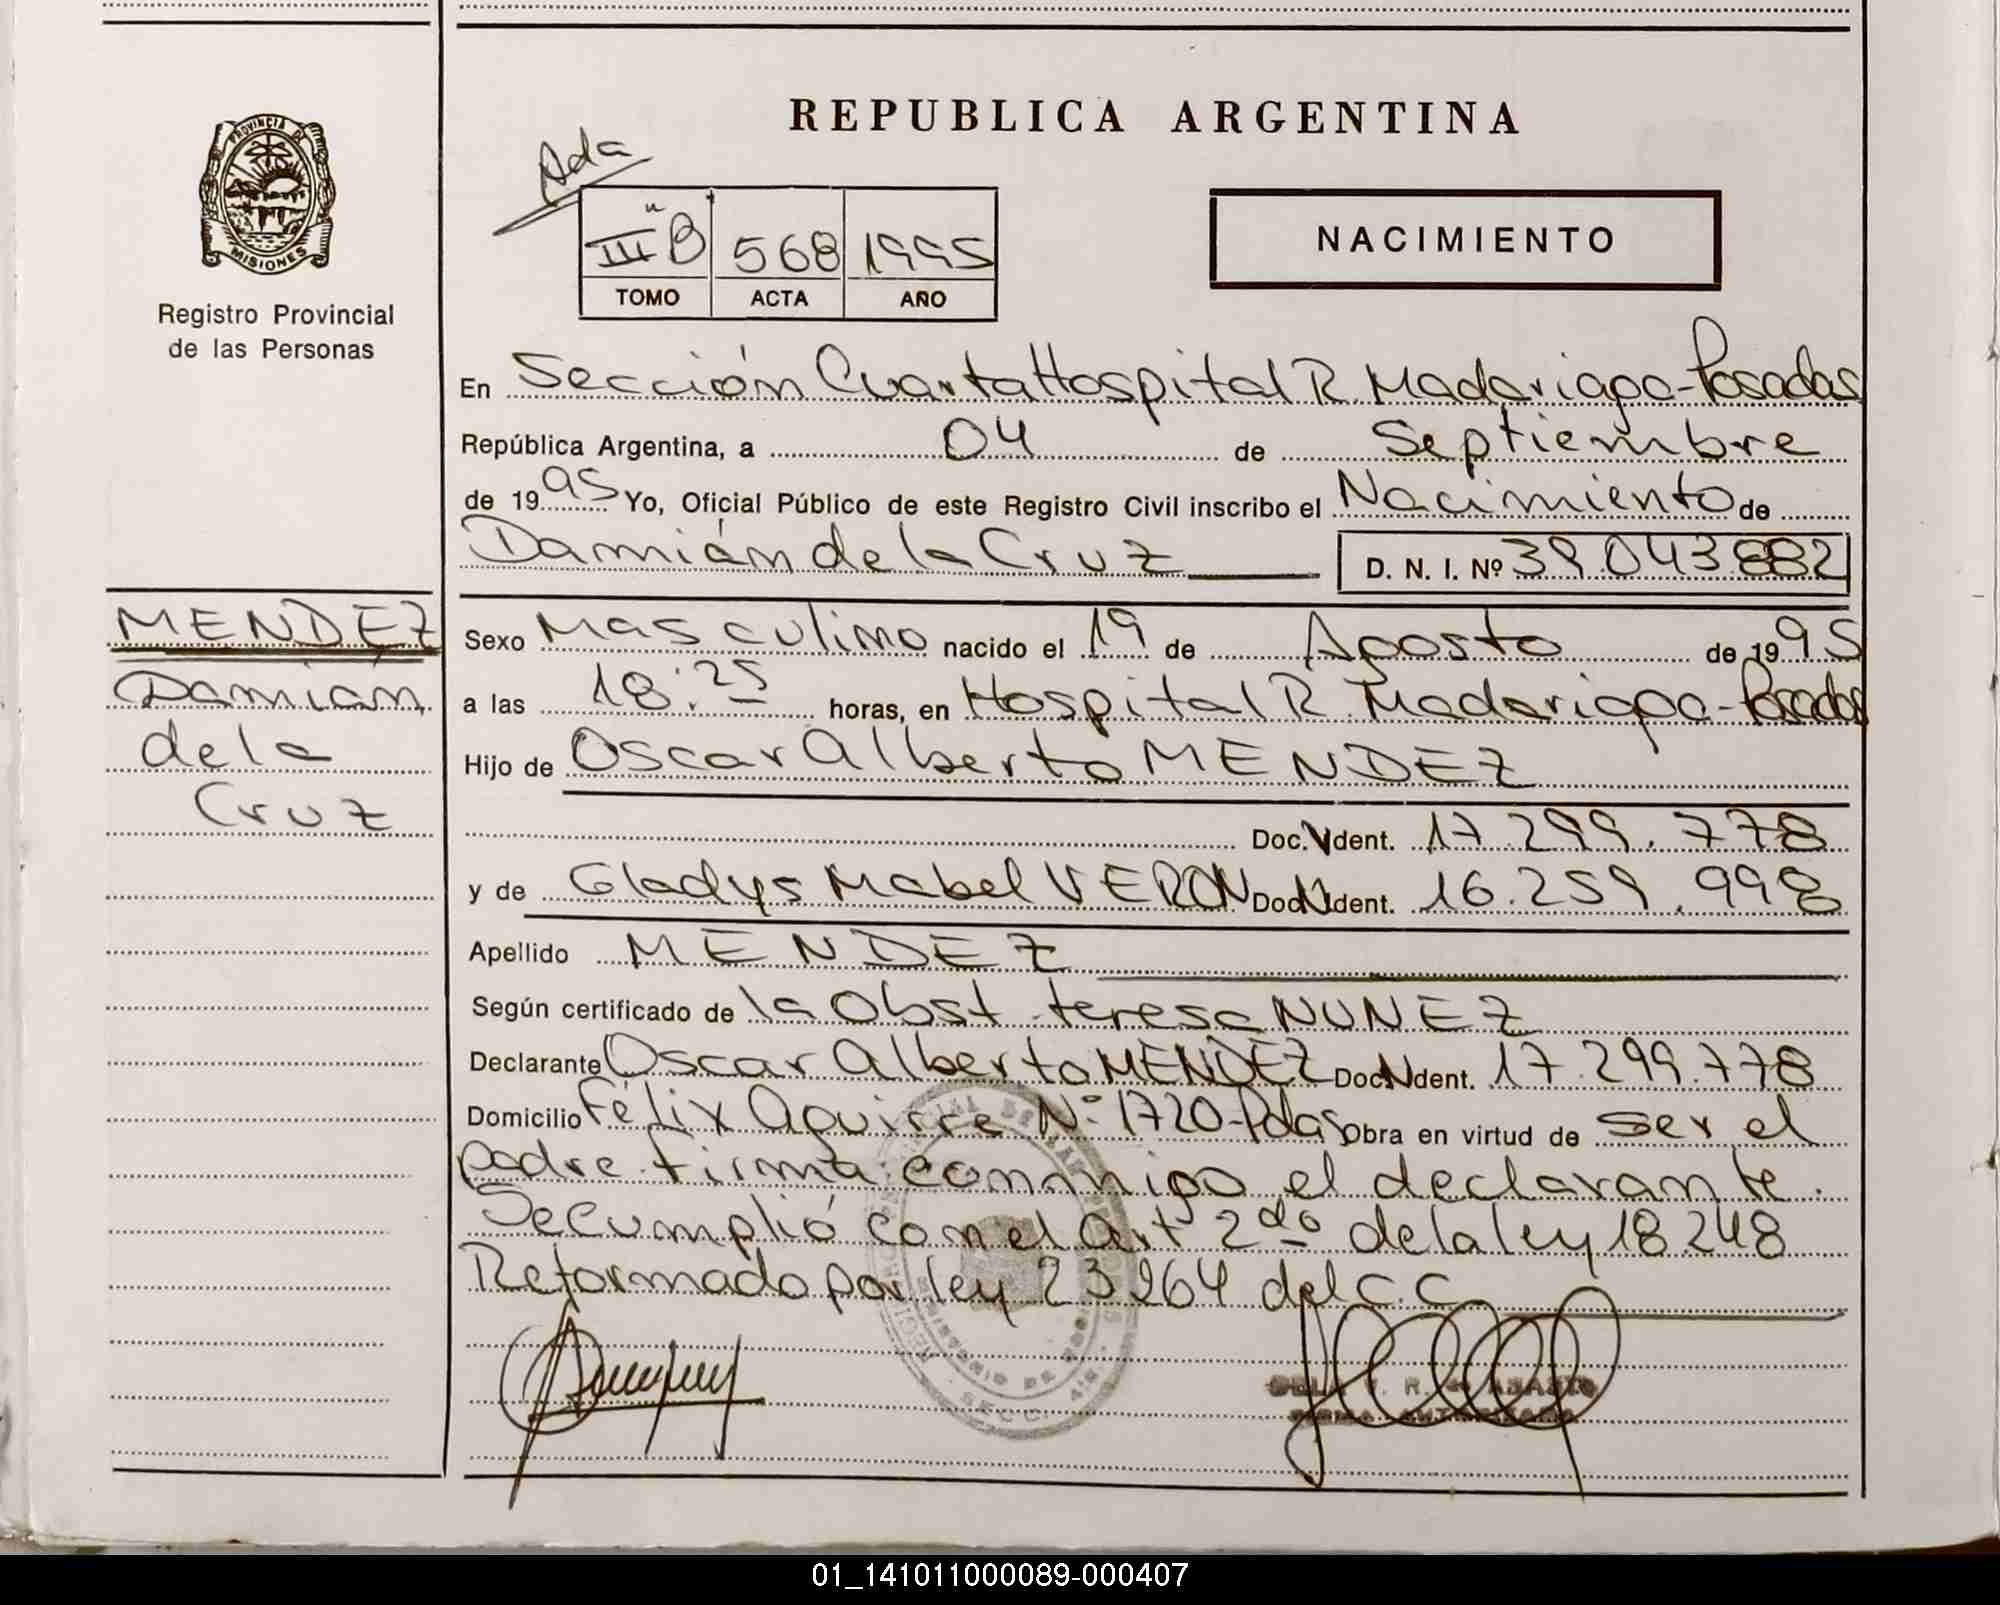 REPUBLICA ARGENTINA
Ada
PROVINCIA DE
MISIONES
Registro Provincial
de las Personas
III "B 568 1995
TOMO ACTA AÑO
NACIMIENTO
En Sección Cuarta Hospital R. Madariaga-Posadas
República Argentina, a 04 de Septiembre
de 1995 Yo, Oficial Público de este Registro Civil inscribo el Nacimiento de
Damián de la Cruz D. N. I. Nº 39.043.882
MENDEZ
Damián
de la
Cruz
Sexo Masculino nacido el 19 de Agosto de 1995
a las 18:25 horas, en Hospital R. Madariaga-Posadas
Hijo de Oscar Alberto MENDEZ
Doc. Ident. 17.299.778
y de Gladys Mabel VERON Doc. Ident. 16.259.998
Apellido MENDEZ
Según certificado de la Obst. teresa NUNEZ
Declarante Oscar Alberto MENDEZ Doc. Ident. 17.299.778
Domicilio Félix Aguirre Nº 1720-Pdas Obra en virtud de ser el
padre. firma conmigo el declarante.
Se cumplió con el Art 2do de la ley 18.248
Reformado por ley 23264 del C.C.
01_141011000089-000407